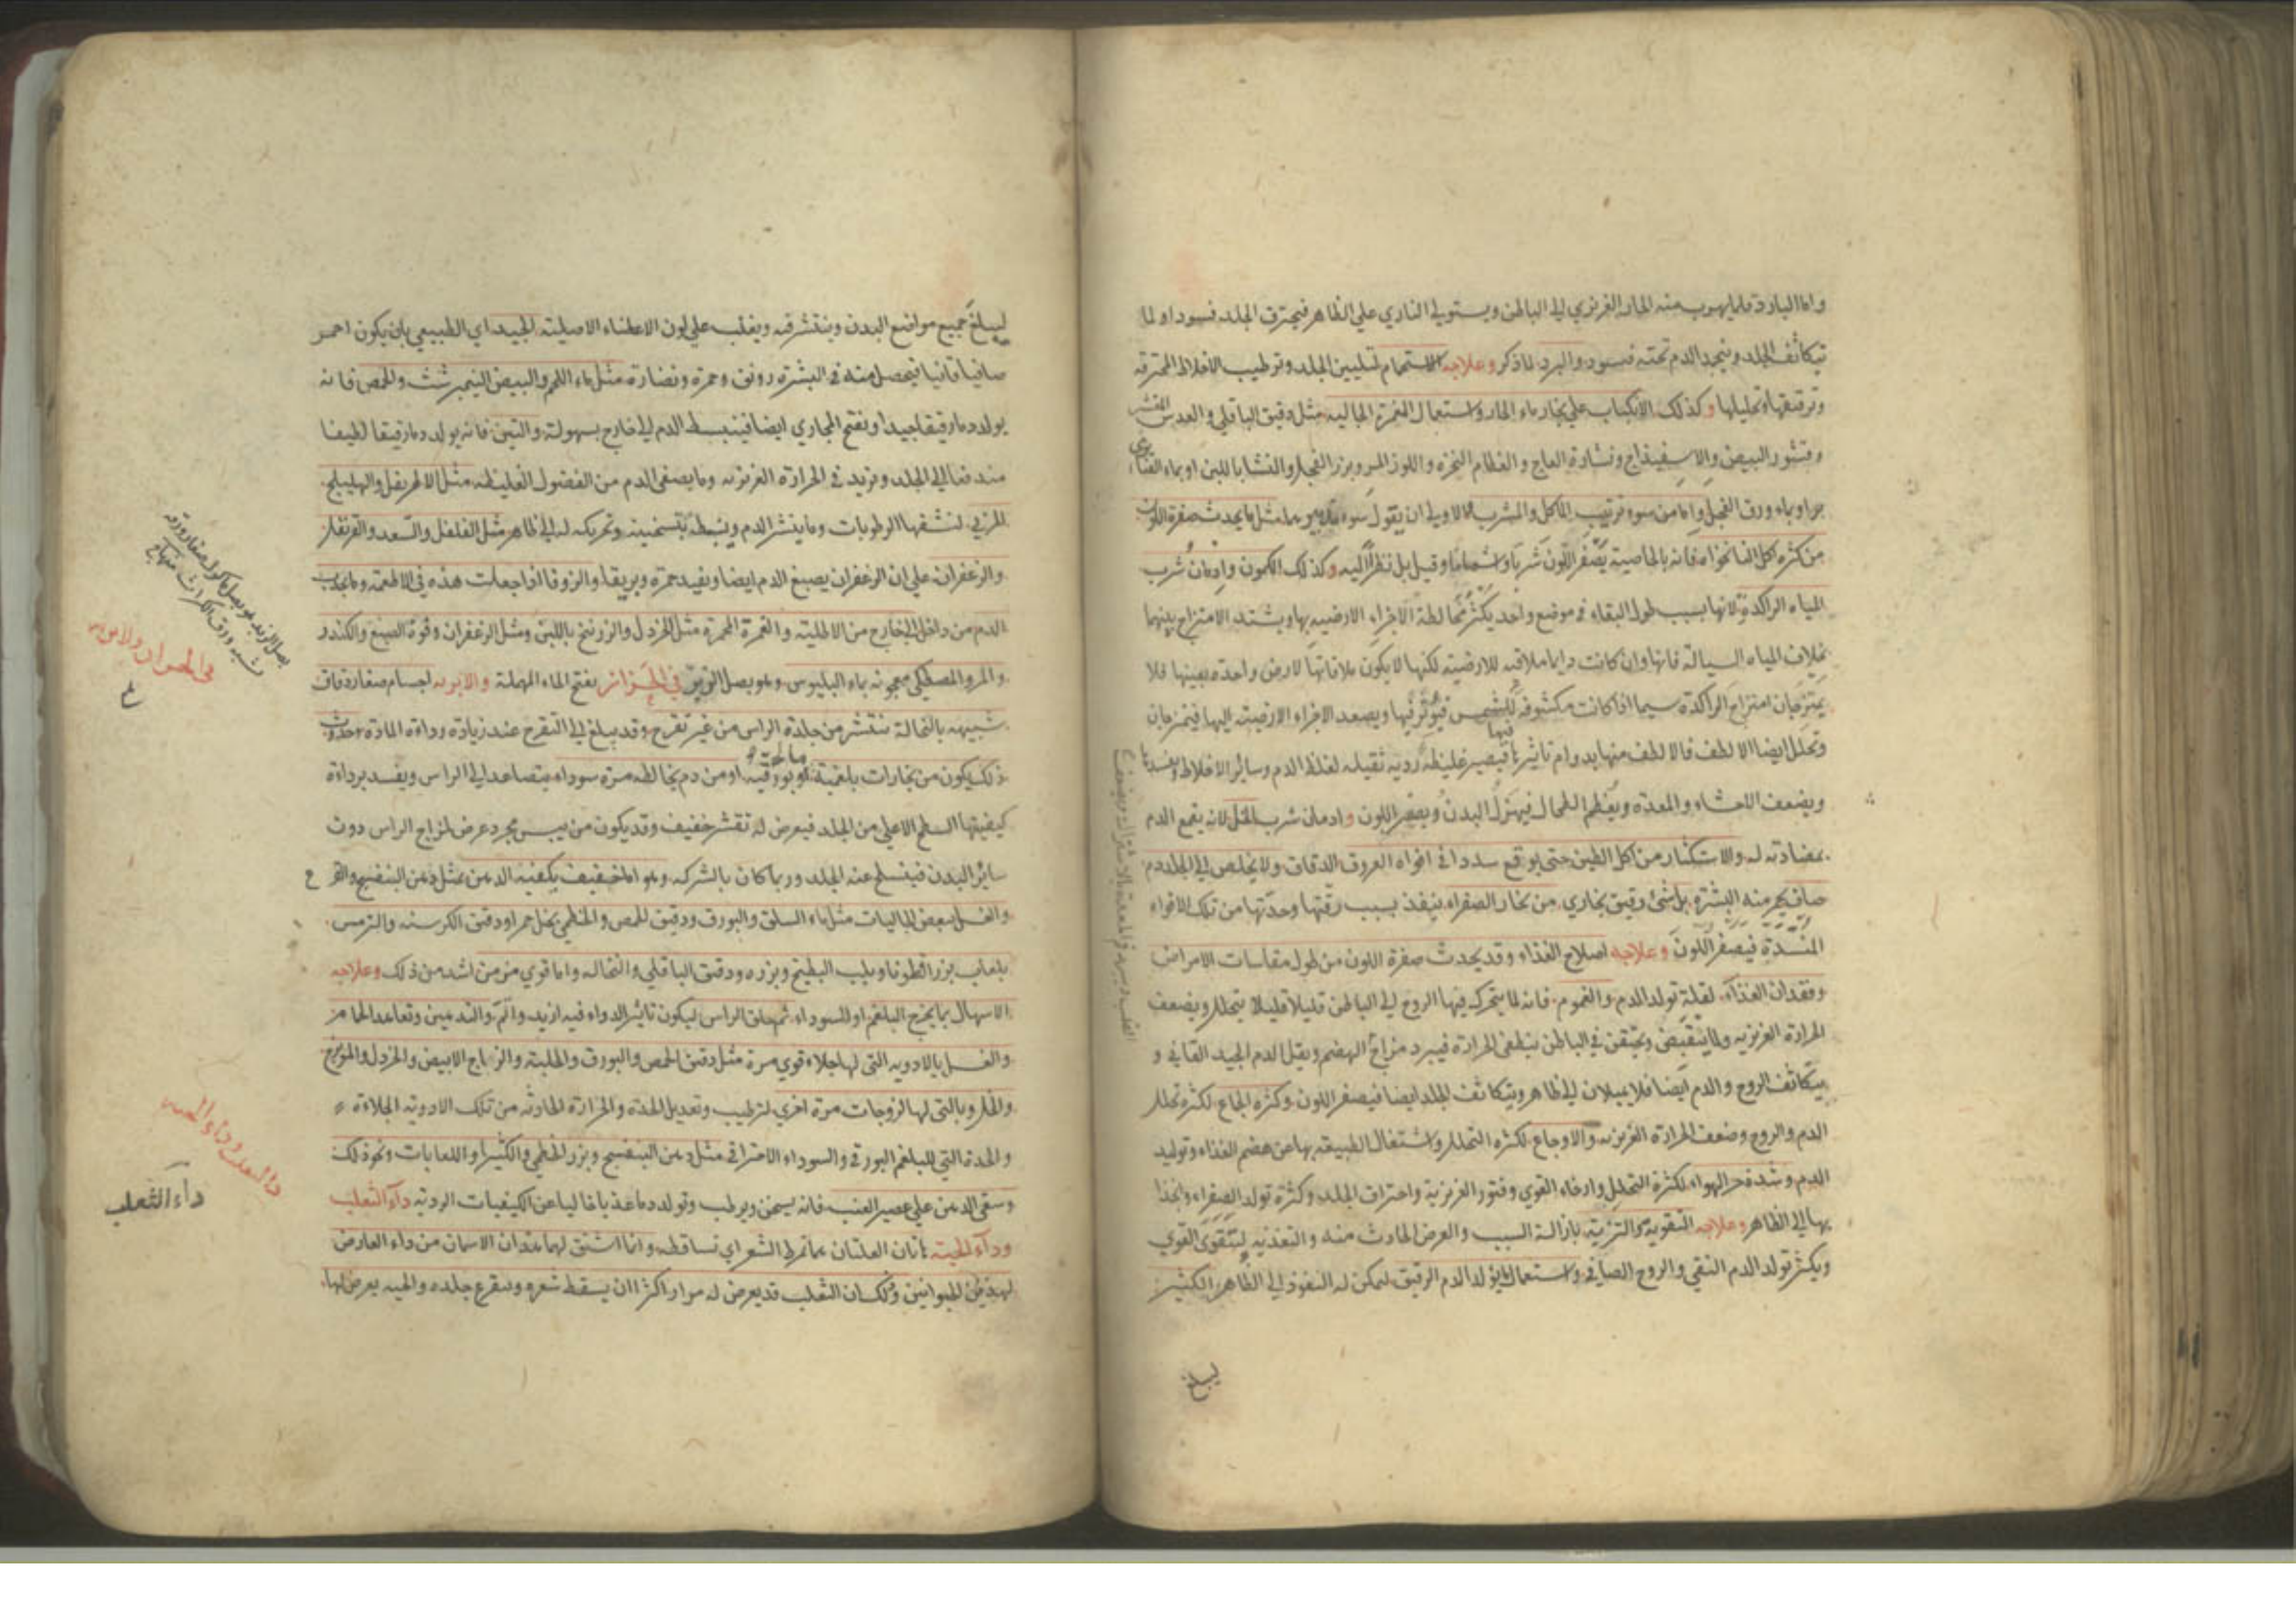 واما البارد فلما يهرب منه الحار الغريزي الى الباطن ويستولي الناري على الظاهر فيحترق الجلد فيسود او لما
يتكاثف الجلد وينجمد الدم تحته فيسود والبرد لما ذكر وعلاجه الاستحمام لتليين الجلد وترطيب الاخلاط المحترقه
وترقيقها وتحليلها وكذلك الانكباب على بخار ماء الحار واستعمال الغمرة الجاليه مثل دقيق الباقلي والعدس المقشر
وقشور البيض والاسفيذاج ونشارة العاج والعظام النخره واللوز المر وبزر الفجل والنشا باللبن او بماء القثاء
او بماء ورق الفجل واما من سوء ترتيب المأكل والمشرب الاولى ان يقول سوء تدبيرهما مثل ما يحدث صفرة اللون
من كثره اكل النانخواه فانه بالخاصيه يصفر اللون شربا واشماما وقيل بل نظرا اليه وكذلك الكمون وادمان شرب
المياه الراكدة لانها بسبب طول البقاء في موضع واحد يكثر مخالطة الاجزاء الارضيه بها ويشتد الامتزاج بينهما
بخلاف المياه السيالة فانها وان كانت دايما ملاقيه للارضيه لكنها لا يكون ملاقاتها لارض واحده بعينها فلا
يمتزجان امتزاج الراكدة سيما اذا كانت مكشوفه للشمس فيؤثر فيها ويصعد الاجزاء الارضيه اليها فيتمزجان
وتحلل ايضا الالطف فالالطف منها بدوام تاثيرها فيها فيصير غليظه رديه ثقيله لغلظ الدم وساير الاخلاط
ويضعف الاحشاء والمعده ويعظم الطحال فيهزل البدن ويصفر اللون وادمان شرب الخل لانه يقمع الدم
بمضادته له والاستكثار من اكل الطين حتى يوقع سددا في افواه العروق الدقاق ولا يخلص الى الجلد دم
صاف يحمر منه البشرة بل شئ رقيق بخاري من بخار الصفراء ينفذ بسبب رقتها وحدتها من تلك الافواه
المنسدة فيصفر اللون وعلاجه اصلاح الغذاء وقد يحدث صفرة اللون من طول مقاسات الامراض
وفقدان الغذاء لقلة تولد الدم والغموم فانه لما يتحرك فيها الروح الى الباطن قليلا قليلا يتحلل ويضعف
الحرارة الغريزيه ولما ينقبض ويحتقن في الباطن ينطفئ الحرارة فيبرد مزاج الهضم ويقل الدم الجيد القاني و
يتكاثف الروح والدم ايضا فلا يميلان الى ظاهر ويتكاثف الجلد ايضا فيصفر اللون وكثره الجماع لكثرة تحلل
الدم والروح وضعف الحرارة الغريزيه والاوجاع لكثره التحلل واشتغال الطبيعه بها عن هضم الغذاء وتوليد
الدم وشدة حر الهواء لكثرة التحليل وارخاء القوي وفتور الغريزية واحتراق الجلد وكثرة تولد الصفراء
بها الى الظاهر وعلاجه التقوية بازالة السبب والعرض الحادث منه والتغذيه ليتقوى القوي
ويكثر تولد الدم النقي والروح الصافي واستعمال ما يولد الدم الرقيق ليمكن له النفوذ الى الظاهر الكثير
ليبلغ
ليبلغ جميع مواضع البدن وينتشر فيه ويغلب على لون الاعضاء الاصليته الجيد اي الطبيعي بان يكون احمر
صافيا قانيا فيحصل منه في البشرة رونق وحمرة ونضارة مثل ماء اللحم والبيض النيمبرشت والحمص فانه
يولد دما رقيقا جيدا ويفتح المجاري ايضا فينبسط الدم الى خارج بسهولة والتين فانه يولد دما رقيقا لطيفا
مندفعا الى الجلد ويزيد في الحرارة الغريزيه وما يصفي الدم من الفضول الغليظه مثل الاطريفل والهليلج
المربى لنشفها الرطوبات وما ينشر الدم ويبسطه بتسخينه وتحريكه له الى ظاهر مثل الفلفل والسعد والقرنفل
والزعفران على ان الزعفران يصبغ الدم ايضا ويفيد حمرة وبريقا والزوفا اذا جعلت هذه في الاطعمه وما يجذب
الدم من داخل الى خارج من الاطليه والغمرة المحمرة مثل الخردل والزرنيخ باللبن ومثل الزعفران وفوة الصبغ والكندر
والمر والمصطكي معجونه بماء البلبوس وهو بصل الزيز في الحزاز بفتح الحاء المهملة والابريه اجسام صغار دقاق
شبيهه بالنخالة تنتشر من جلدة الراس من غير تقرح وقد يبلغ الى التقرح عند زيادة رداءة المادة وحدوث
ذلك يكون من بخارات بلغمية مالحة او بورقيه او من دم يخالطه مرة سوداء يتصاعد الى الراس ويفسد برداءة
كيفيتها السطح الاعلى من الجلد فيعرض له تقشر خفيف وقد يكون من يبس مجرد عرض لمزاج الراس دون
سائر البدن فينسلخ عنه الجلد وربما كان بالشركه وهو اما خفيف يكفيه الدهن بمثل دهن البنفسج والقرع
والغسل ببعض الجاليات مثل ماء السلق والبورق ودقيق الحمص والخطمي بخل خمر او دقيق الكرسنه والترمس
بلعاب بزر قطونا وبلب البطيخ وبزره ودقيق الباقلي والنخاله واما قوي مزمن اشد من ذلك وعلاجه
الاسهال بما يخرج البلغم او السوداء ثم حلق الراس ليكون تاثير الدواء فيه ازيد واتم والتدهين وتعاهد الحمام
والغسل بالادويه التي لها جلاء قوي مرة مثل دقيق الحمص والبورق والحلبة والزجاج الابيض والخردل والمويزج
والخل وبالتي لها لزوجات مرة اخري لترطيب وتعديل الحدة والحرارة الحادثه من تلك الادويه الجلاءة
والحدة التي للبلغم البورقي والسوداء الاحتراقي مثل دهن البنفسج وبزر الخطمي والكثيرا واللعابات ونحو ذلك
وسقي الدهن على عصير العنب فانه يسخن ويرطب ويولد دما عذبا خاليا عن الكيفيات الرديه داء الثعلب
وداء الحية هاتان العلتان هما تمرط الشعر اي تساقطه وانما اشتق لهما هذان الاسمان من داء العارض
لهذين الحيوانين وذلك ان الثعلب قد يعرض له مرارا كثيرا ان يسقط شعره ويتقرع جلده والحيه يعرض لها
بصل الزيز هو بصل ماكول صغار ورقه
يشبه ورق الكراث منهاج
في الحزاز والابريه
داء الثعلب وداء الحيه
داء الثعلب